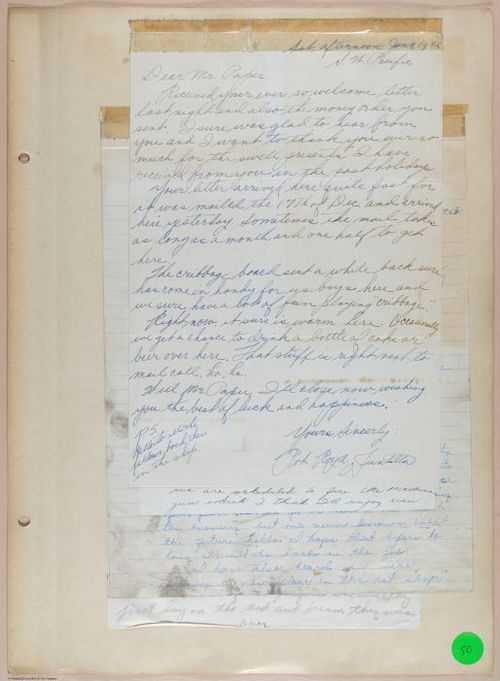 Sat afternoon Jan
S W Pacific
Dear Mr. Paper
Received your ever so welcome letter
last night and also the money order you
sent. I sure was glad to hear from
you and I want to thank you ever so
much for the swell presents I have
received from you in the past holidays
Your letter arrived here quite fast for
it was mailed the 17th of Dec. and arrived
here yesterday. Sometimes the mail takes
as long as a month and one half to get
here.
The cribbage board sent a while back sure
has come in handy for us boys here and
we sure have a lot of fun playing "cribbage."
Right now it sure is warm here. Occasionally
we get a chance to drink a bottle of coke or
beer over here. That stuff is right next to
mail call, ho, ho.
Well Mr. Paper, I'll close now wishing
you the best of luck and happiness.
Yours Sincerly:
Pvt. Royal
P.S.
Hello to
fellows back there
in the shop.
we are scheduled to fire the
gun which I think I'll enjoy
but one never knows
the future. I hope that before to
long back on the job
I have also heard
in the hat shop
first lay on the and dream they were
over
50